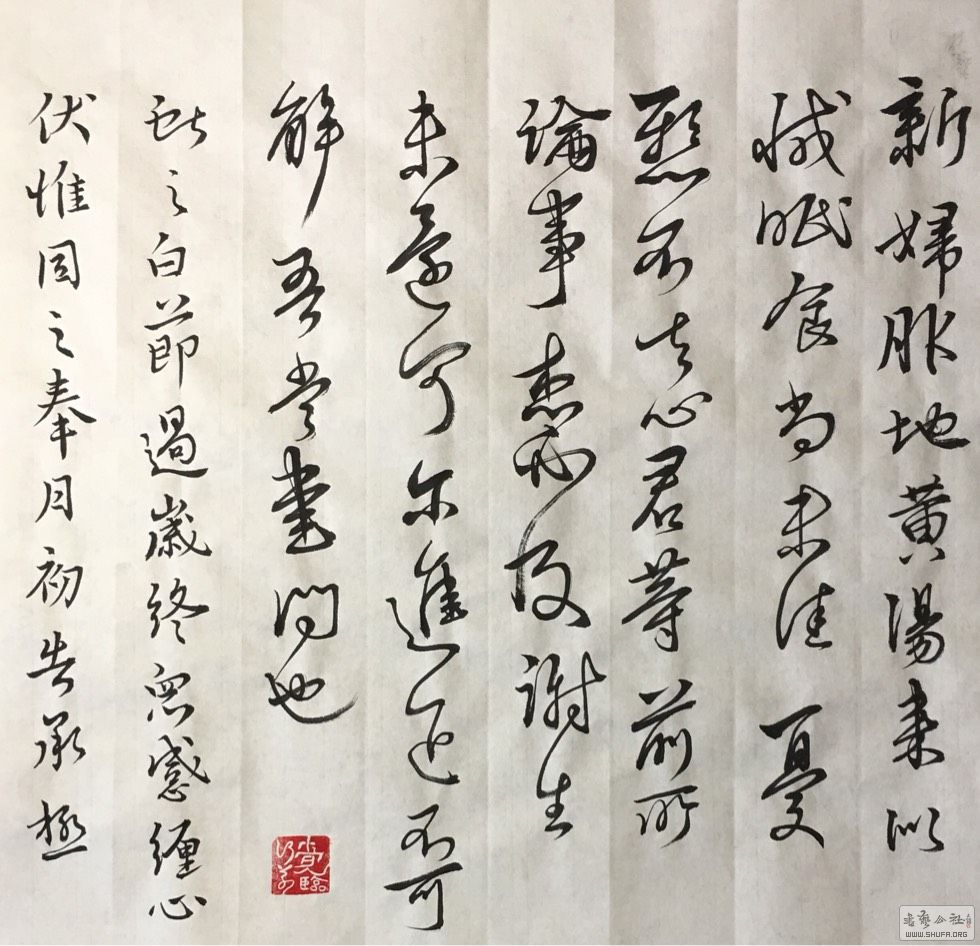 新婦服地黄湯来似
減眠食尚未佳憂
懸不去心君等前所
論事想必及謝生
未還可尔進退不可
解吾當書問也
献之白節過歲終眾感纏心
伏惟同之奉月初告承極
書藝公社
WWW.SHUFA.ORG